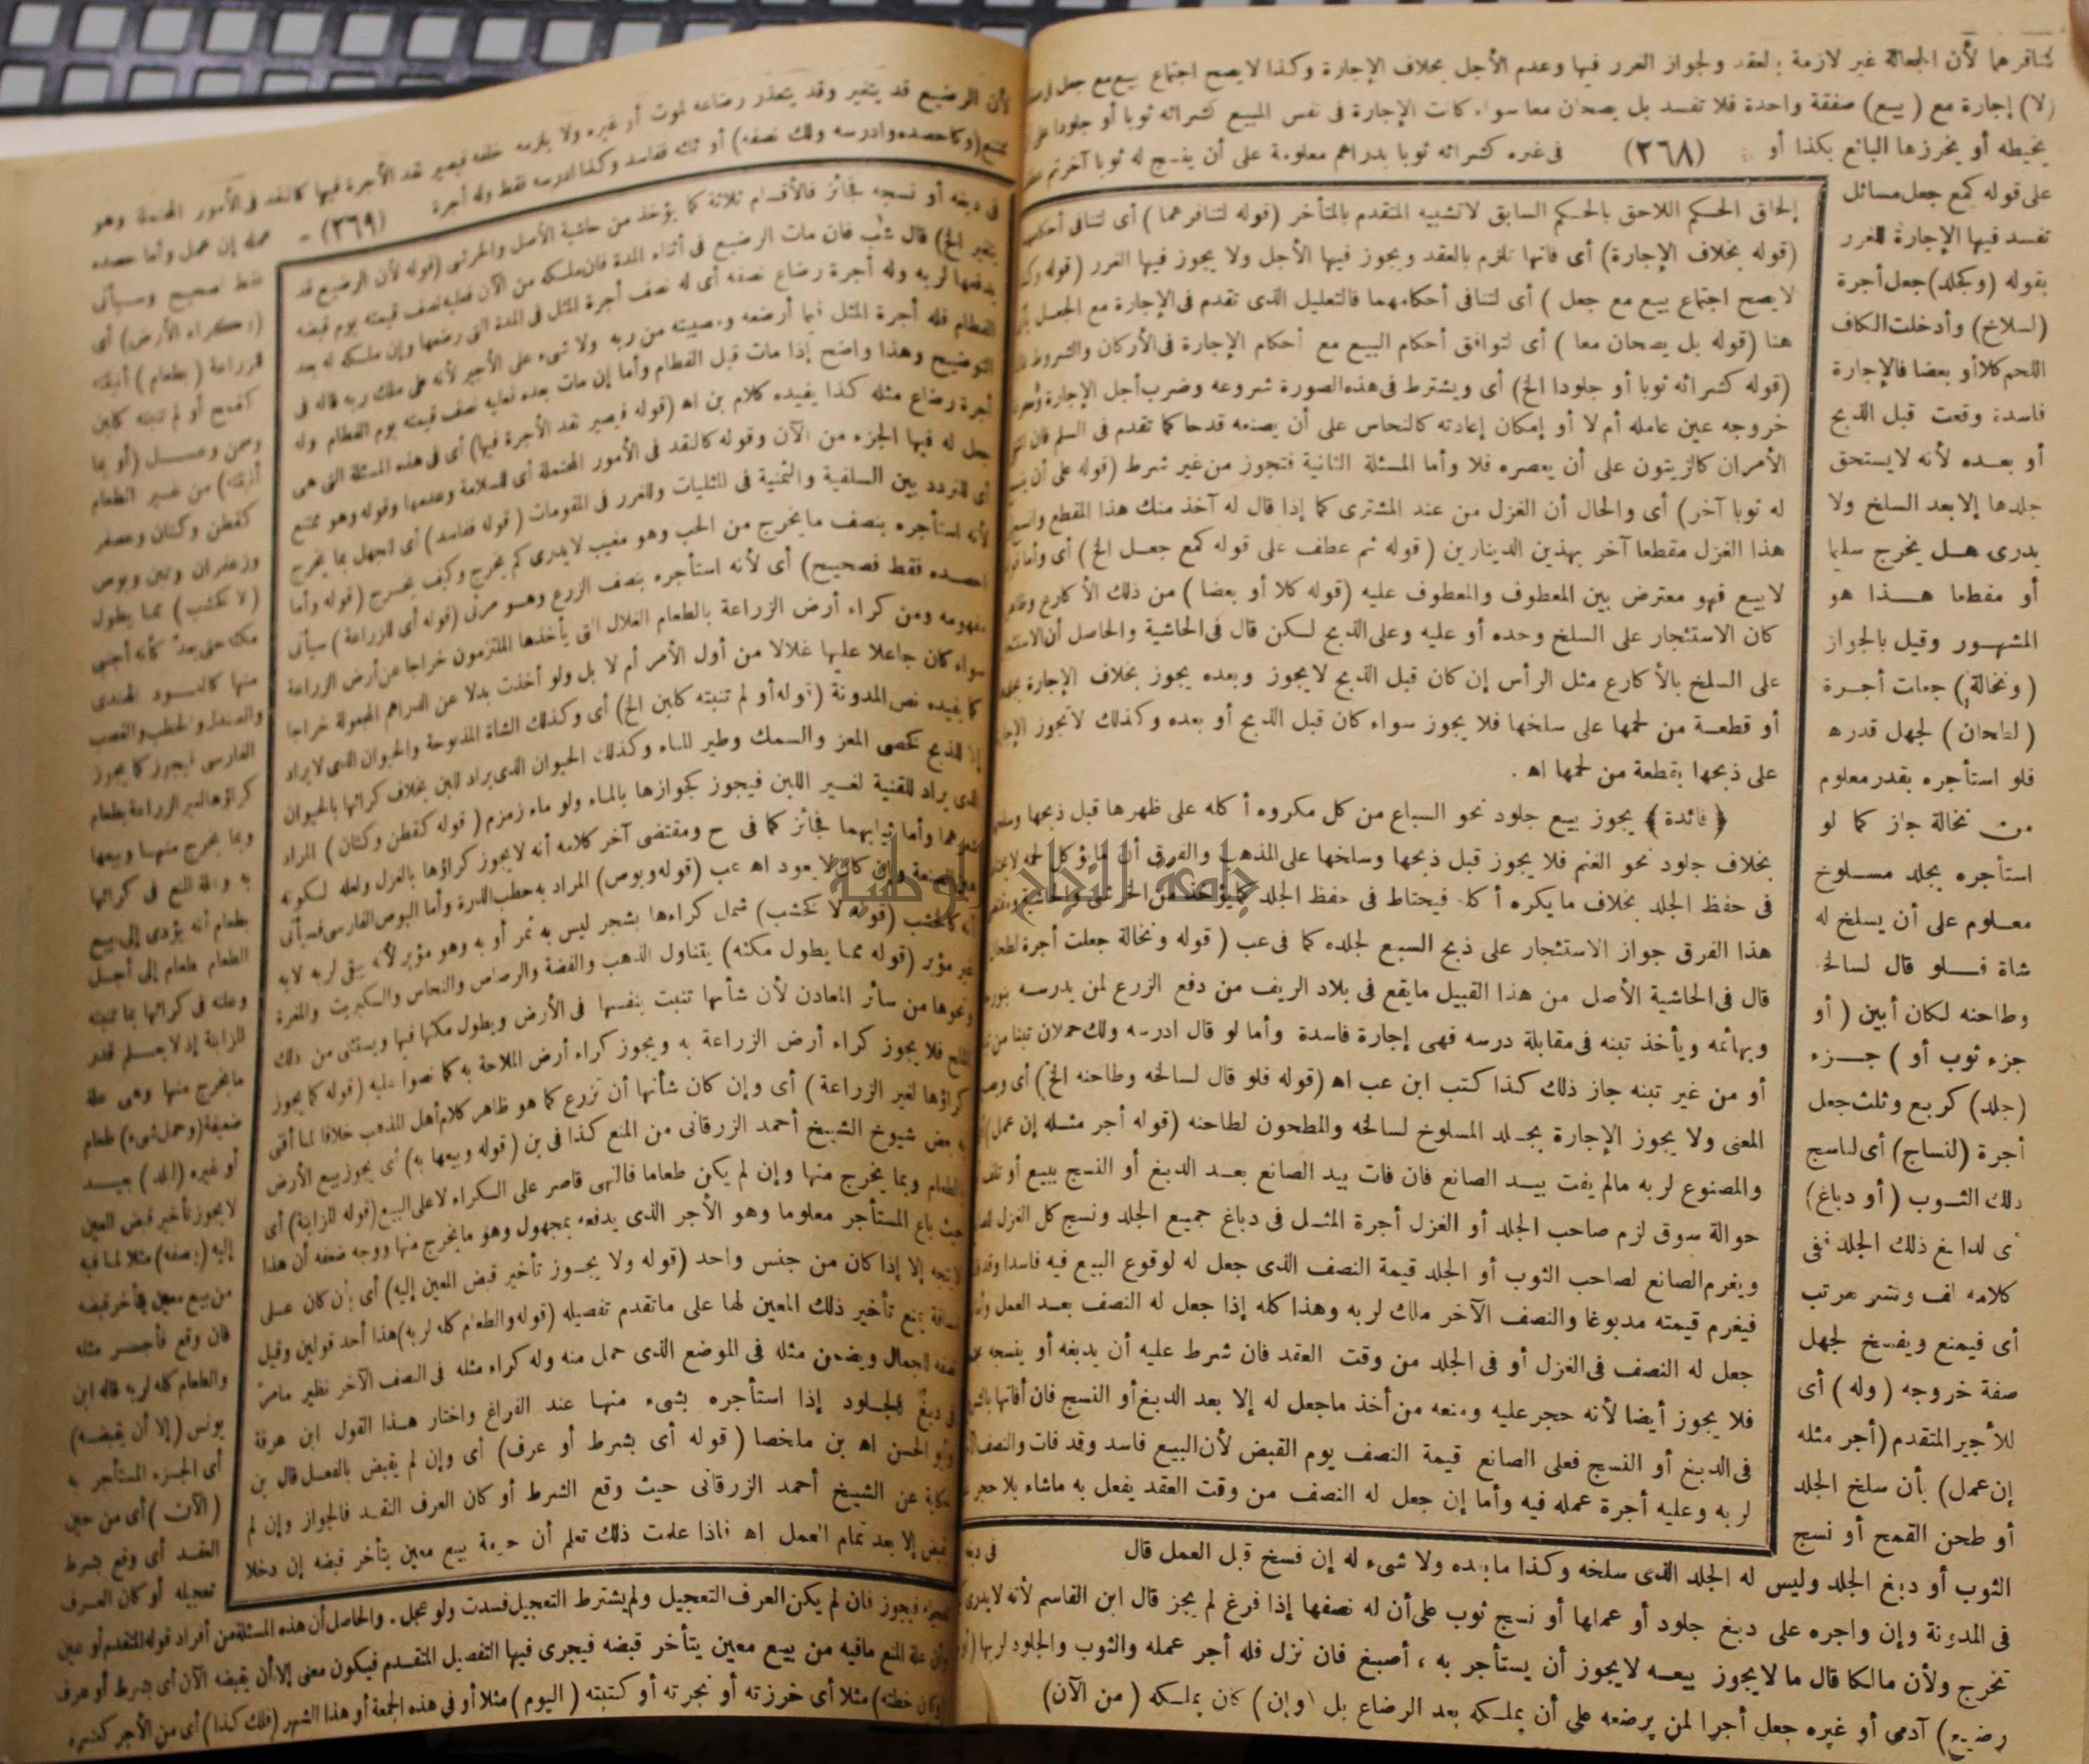 لتنافرهما لأن الجعالة غير لازمة بالعقد ولجواز الغرر فيها وعدم الأجل بخلاف الإجارة وكذا لا يصح اجتماع بيع مع جعل
(لا) إجارة مع (بيع) صفقة واحدة فلا تفسد بل يصحان معا سواء كانت الإجارة فى نفس المبيع كشرائه ثوبا أو جلودا على
يخيطه أو يخرزها البائع بكذا أو (٣٦٨) فى غيره كشرائه ثوبا بدراهم معلومة على أن ينسج له ثوبا آخر ثم عطف
على قوله كمع جعل مسائل
تفسد فيها الإجارة للغرر
بقوله (وكجلد) جعل أجرة
(لسلاخ) وأدخلت الكاف
اللحم كلا أو بعضا فالإجارة
فاسدة وقعت قبل الذبح
أو بعده لأنه لا يستحق
جلدها إلا بعد السلخ ولا
يدرى هل يخرج سليما
أو مقطعا هذا هو
المشهور وقيل بالجواز
(ونخالة) جعلت أجرة
(لطحان) لجهل قدرها
فلو استأجره بقدر معلوم
من نخالة جاز كما لو
استأجره بجلد مسلوخ
معلوم على أن يسلخ له
شاة فلو قال لسالخه
وطاحنه لكان أبين (أو
جزء ثوب أو) جزء
(جلد) كربع وثلث جعل
أجرة (لنساج) أى لناسج
ذلك الثوب (أو دباغ)
أى لدابغ ذلك الجلد ففى
كلامه لف ونشر مرتب
أى فيمنع ويفسخ لجهل
صفة خروجه (وله) أى
للأجير المتقدم (أجر مثله
إن عمل) بأن سلخ الجلد
أو طحن القمح أو نسج
الثوب أو دبغ الجلد وليس له الجلد الذى سلخه وكذا ما بعده ولا شىء له إن فسخ قبل العمل قال
فى المدونة وإن واجره على دبغ جلود أو عملها أو نسج ثوب على أن له نصفها إذا فرغ لم يجز قال ابن القاسم لأنه لا يدرى
تخرج ولأن مالكا قال ما لا يجوز بيعه لا يجوز أن يستأجر به ، أصبغ فان نزل فله أجر عمله والثوب والجلود لربها (أو
رضيع) آدمى أو غيره جعل أجرا لمن يرضعه على أن يملكه بعد الرضاع بل (وإن) كان يملكه (من الآن)
إلحاق الحكم اللاحق بالحكم السابق لا تشبيه المتقدم بالمتأخر (قوله لتنافرهما) أى لتنافى أحكامهما
(قوله بخلاف الإجارة) أى فانها تلزم بالعقد ويجوز فيها الأجل ولا يجوز فيها الغرر (قوله وكذا
لا يصح اجتماع بيع مع جعل) أى لتنافى أحكامهما فالتعليل الذى تقدم فى الإجارة مع الجعل
هنا (قوله بل يصحان معا) أى لتوافق أحكام البيع مع أحكام الإجارة فى الأركان والشروط
(قوله كشرائه ثوبا أو جلودا الخ) أى ويشترط فى هذه الصورة شروعه وضرب أجل الإجارة
خروجه عين عامله أم لا أو إمكان إعادته كالنحاس على أن يصنعه قدحا كما تقدم فى السلم فان
الأمران كالزيتون على أن يعصره فلا وأما المسئلة الثانية فتجوز من غير شرط (قوله على أن ينسج
له ثوبا آخر) أى والحال أن الغزل من عند المشترى كما إذا قال له آخذ منك هذا المقطع وانسج
هذا الغزل مقطعا آخر بهذين الدينارين (قوله ثم عطف على قوله كمع جعل الخ) أى وأما قوله
لا بيع فهو معترض بين المعطوف والمعطوف عليه (قوله كلا أو بعضا) من ذلك الأكارع وظاهره
كان الاستئجار على السلخ وحده أو عليه وعلى الذبح لكن قال فى الحاشية والحاصل أن الاستئجار
على السلخ بالأكارع مثل الرأس إن كان قبل الذبح لا يجوز وبعده يجوز بخلاف الإجارة
أو قطعة من لحمها على سلخها فلا يجوز سواء كان قبل الذبح أو بعده وكذلك لا تجوز الإجارة
على ذبحها بقطعة من لحمها اه .
﴿فائدة﴾ يجوز بيع جلود نحو السباع من كل مكروه أكله على ظهرها قبل ذبحها وسلخها
بخلاف جلود نحو الغنم فلا يجوز قبل ذبحها وسلخها على المذهب والفرق أن ما يؤكل لحمه
فى حفظ الجلد بخلاف ما يكره أكله فيحتاط فى حفظ الجلد كما يؤخذ من الخرشى والحاشية
هذا الفرق جواز الاستئجار على ذبح السبع لجلده كما فى عب (قوله ونخالة جعلت أجرة لطحان)
قال فى الحاشية الأصل من هذا القبيل ما يقع فى بلاد الريف من دفع الزرع لمن يدرسه بنورجه
وبهائمه ويأخذ تبنه فى مقابلة درسه فهى إجارة فاسدة وأما لو قال ادرسه ولك حملان تبنا من
أو من غير تبنه جاز ذلك كذا كتب ابن عب اه (قوله فلو قال لسالخه وطاحنه الخ) أى
المعنى ولا يجوز الإجارة بجلد المسلوخ لسالخه والمطحون لطاحنه (قوله أجر مثله إن عمل)
والمصنوع لربه مالم يفت بيد الصانع فان فات بيد الصانع بعد الدبغ أو النسج ببيع أو تلف
حوالة سوق لزم صاحب الجلد أو الغزل أجرة المثل فى دباغ جميع الجلد ونسج كل الغزل
ويغرم الصانع لصاحب الثوب أو الجلد قيمة النصف الذى جعل له لوقوع البيع فيه فاسدا وقد
فيغرم قيمته مدبوغا والنصف الآخر ملك لربه وهذا كله إذا جعل له النصف بعد العمل
جعل له النصف فى الغزل أو فى الجلد من وقت العقد فان شرط عليه أن يدبغه أو ينسجه
فلا يجوز أيضا لأنه حجر عليه ومنعه من أخذ ما جعل له إلا بعد الدبغ أو النسج فان أفاتها
فى الدبغ أو النسج فعلى الصانع قيمة النصف يوم القبض لأن البيع فاسد وقد فات والنصف
لربه وعليه أجرة عمله فيه وأما إن جعل له النصف من وقت العقد يفعل به ماشاء بلا حجر
لأن الرضيع قد يتغير وقد يتعذر رضاعه لموت أو غيره ولا يلزمه خلفه فيصير نقد الأجرة فيها كالنقد فى الأمور المحتملة وهو
ممتنع (وكاحصده وادرسه ولك نصفه) أو ثلثه ففاسد وكذا ادرسه فقط وله أجرة (٣٦٩) عمله إن عمل وأما حصده
فقط فصحيح وسيأتى
(وكراء الأرض) أى
للزراعة (بطعام) أنبتته
كقمح أو لم تنبته كلبن
وسمن وعسل (أو بما
أنبتته) من غير الطعام
كقطن وكتان وعصفر
وزعفران وتبن وبوص
(لا كخشب) مما يطول
مكثه حتى يعد كأنه أجنبى
منها كالعود الهندى
والصندل والحطب والقصب
الفارسى فيجوز كما يجوز
كراؤها لغير الزراعة بطعام
وبما يخرج منها وبيعها
به وعلة المنع فى كرائها
بطعام أنه يؤدى إلى بيع
الطعام بطعام إلى أجل
وعلته فى كرائها بما تنبته
المزابنة إذ لا يعلم قدر
ما يخرج منها وهى علة
ضعيفة (وحمل شىء) طعام
أو غيره (لبلد) بعيد
لا يجوز تأخير قبض المعين
إليه (بنصفه) مثلا لما فيه
من بيع معين يتأخر قبضه
فان وقع فأجر مثله
والطعام كله لربه قاله ابن
يونس (إلا أن يقبضه)
أى الجزء المستأجر به
(الآن) أى من حين
العقد أى وقع بشرط
تعجيله أو كان العرف
تعجيله فيجوز فان لم يكن العرف التعجيل ولم يشترط التعجيل فسدت ولو عجل . والحاصل أن هذه المسئلة من أفراد قوله المتقدم أو عين
وأن علة المنع مافيه من بيع معين يتأخر قبضه فيجرى فيها التفصيل المتقدم فيكون معنى إلا أن يقبضه الآن أى بشرط أو عرف
(وكإن خطته) مثلا أى خرزته أو نجرته أو كتبته (اليوم) مثلا أو فى هذه الجمعة أو هذا الشهر (فلك كذا) أى من الأجر كعشرة
فى دبغه أو نسجه فجائز فالأقسام ثلاثة كما يؤخذ من حاشية الأصل والخرشى (قوله لأن الرضيع قد
يتغير الخ) قال شب فان مات الرضيع فى أثناء المدة فان ملكه من الآن فعليه نصف قيمته يوم قبضه
يدفعها لربه وله أجرة رضاع نصفه أى له نصف أجرة المثل فى المدة التى رضعها وإن ملكه له بعد
الفطام فله أجرة المثل فيما أرضعه ومصيبته من ربه ولا شىء على الأجير لأنه على ملك ربه قاله فى
التوضيح وهذا واضح إذا مات قبل الفطام وأما إن مات بعده فعليه نصف قيمته يوم الفطام وله
أجرة رضاع مثله كذا يفيده كلام بن اه (قوله فيصير نقد الأجرة فيها) أى فى هذه المسئلة التى هى
جعل له فيها الجزء من الآن وقوله كالنقد فى الأمور المحتملة أى للسلامة وعدمها وقوله وهو ممتنع
أى للتردد بين السلفية والثمنية فى المثليات وللغرر فى المقومات (قوله ففاسد) أى للجهل بما يخرج
لأنه استأجره بنصف ما يخرج من الحب وهو مغيب لا يدرى كم يخرج وكيف يخرج (قوله وأما
حصده فقط فصحيح) أى لأنه استأجره بنصف الزرع وهو مرئى (قوله أى للزراعة) سيأتى
مفهومه ومن كراء أرض الزراعة بالطعام الغلال التى يأخذها الملتزمون خراجا عن أرض الزراعة
سواء كان جاعلا عليها غلالا من أول الأمر أم لا بل ولو أخذت بدلا عن الدراهم المجعولة خراجا
كما يفيده نص المدونة (قوله أو لم تنبته كلبن الخ) أى وكذلك الشاة المذبوحة والحيوان الذى لا يراد
إلا للذبح كخصى المعز والسمك وطير الماء وكذلك الحيوان الذى يراد للبن بخلاف كرائها بالحيوان
الذى يراد للقنية لغير اللبن فيجوز كجوازها بالماء ولو ماء زمزم (قوله كقطن وكتان) المراد
شعرهما وأما ثيابهما فجائز كما فى ح ومقتضى آخر كلامه أنه لا يجوز كراؤها بالغزل ولعله لكونه
يعود اه عب (قوله وبوص) المراد به حطب الذرة وأما البوص الفارسى فسيأتى
أنه كالخشب (قوله لا كخشب) شمل كراءها بشجر ليس به ثمر أو به وهو مؤبر لأنه يبقى لربه لا به
غير مؤبر (قوله مما يطول مكثه) يتناول الذهب والفضة والرصاص والنحاس والكبريت والمغرة
ونحوها من سائر المعادن لأن شأنها تنبت بنفسها فى الأرض ويطول مكثها فيها ويستثنى من ذلك
الملح فلا يجوز كراء أرض الزراعة به ويجوز كراء أرض الملاحة به كما نصوا عليه (قوله كما يجوز
كراؤها لغير الزراعة) أى وإن كان شأنها أن تزرع كما هو ظاهر كلام أهل المذهب خلافا لما أفتى
به بعض شيوخ الشيخ أحمد الزرقانى من المنع كذا فى بن (قوله وبيعها به) أى يجوز بيع الأرض
بالطعام وبما يخرج منها وإن لم يكن طعاما فالنهى قاصر على الكراء لا على البيع (قوله المزابنة) أى
حيث باع المستأجر معلوما وهو الأجر الذى يدفعه بمجهول وهو ما يخرج منها ووجه ضعفه أن هذا
لا يتجه إلا إذا كان من جنس واحد (قوله ولا يجوز تأخير قبض المعين إليه) أى بأن كان على
مسافة يمنع تأخير ذلك المعين لها على ماتقدم تفصيله (قوله والطعام كله لربه) هذا أحد قولين وقيل
نصفه للجمال ويضمن مثله فى الموضع الذى حمل منه وله كراء مثله فى النصف الآخر نظير مامر
فى دبغ الجلود إذا استأجره بشىء منها عند الفراغ واختار هذا القول ابن عرفة
وأبو الحسن اه بن ملخصا (قوله أى بشرط أو عرف) أى وإن لم يقبض بالفعل قال بن
حكاية عن الشيخ أحمد الزرقانى حيث وقع الشرط أو كان العرف النقد فالجواز وإن لم
يقبض إلا بعد تمام العمل اه فاذا علمت ذلك تعلم أن حرمة بيع معين يتأخر قبضه إن دخلا
جامعة النجاح الوطنية